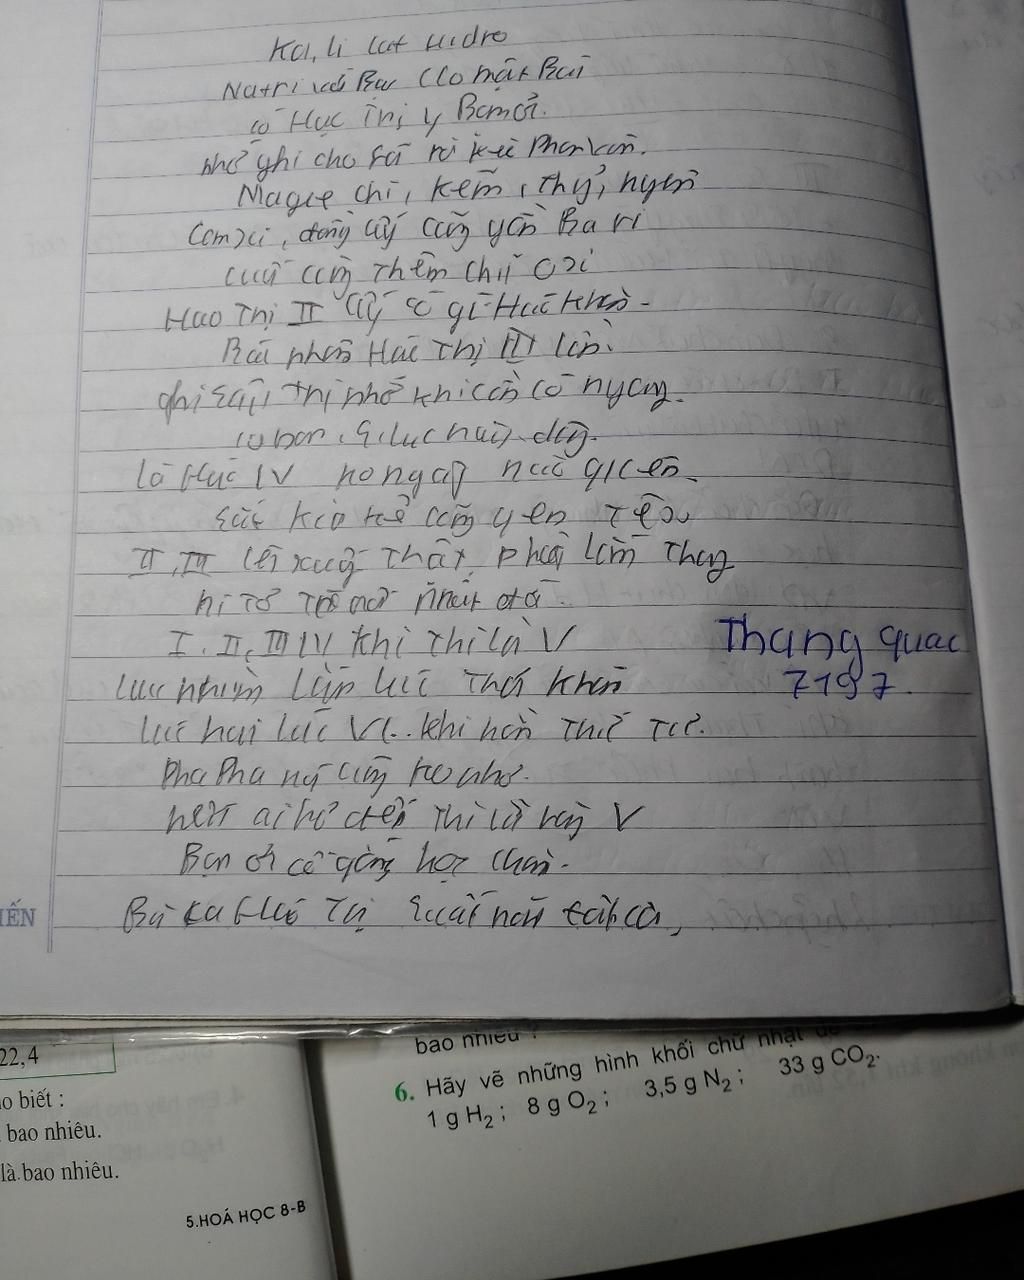 Ka, li Iot Hidro
Natri với Bạc Clo một Bài
có Hoc Trị, y Bạn ơi.
nhớ ghi cho rõ kẻo Phân Vân.
Magie chì, kẽm, thuỷ, ngân
Canxi, đồng ấy cũng gần Bari
cuối cùng Thêm chữ oxi
Hoa Trị II ấy có gì Hoá Khăn -
Bác nhôm Hoá Trị III lần.
ghi sâu trí nhớ khi cần có ngay.
cacbon, silic này đây.
là Hoá IV no ngày nào quên.
sắt kia kể cũng quen Tên
II, III lên xuống Thật phải lắm Thay
ni Tơ rắc rối nhất đời
I. II, III IV khi Thì là V
lưu huỳnh lắm lúc chơi khăm
lúc hai lúc VI.. khi nằm Thứ Tư.
Phot Pho nói cũng ko nhớ.
nếu ai hỏi đến Thì là rằng V
Bạn ơi cố gắng học chăm -
Bài ca Hoá Trị suốt năm cần cả,
Thang quac
7197.
IẾN
22,4
o biết :
bao nhiêu.
là bao nhiêu.
5.HOÁ HỌC 8-B
bao nhiêu ?
6. Hãy vẽ những hình khối chữ nhật để
1 g H₂ ; 8 g O₂ ; 3,5 g N₂ ; 33 g CO₂.